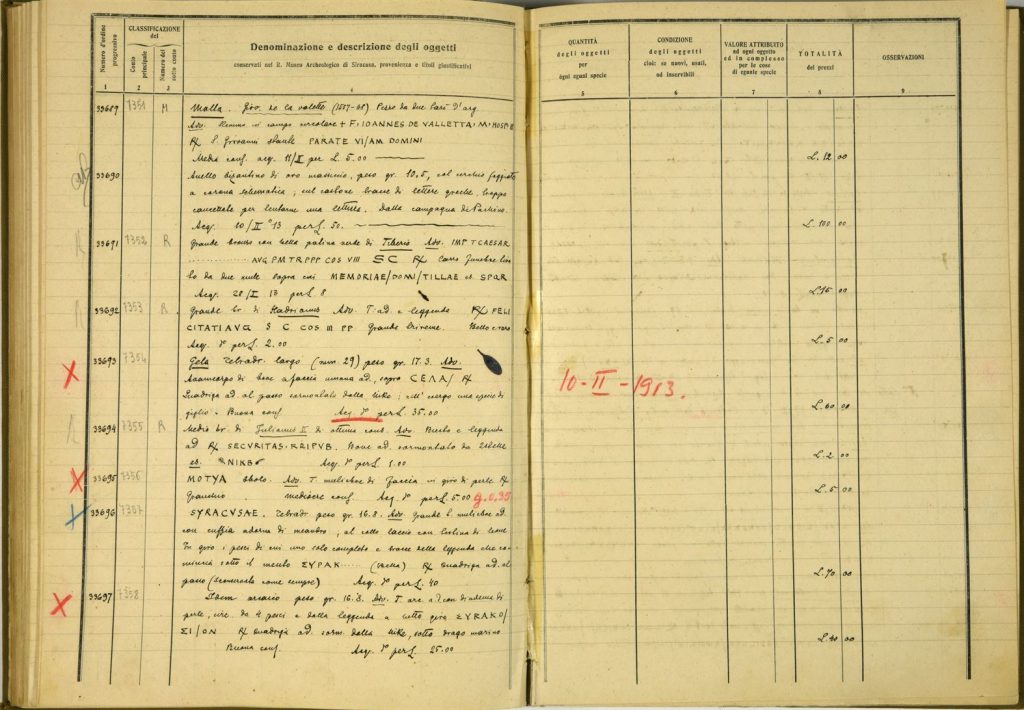 Numero d'ordine progressivo
CLASSIFICAZIONE del
Conto principale
Numero del sotto conto
Denominazione e descrizione degli oggetti
conservati nel R. Museo Archeologico di Siracusa, provenienza e titoli giustificativi
QUANTITÀ degli oggetti per ogni eguni specie
CONDIZIONE degli oggetti cioè: se nuovi, usati, od inservibili
VALORE ATTRIBUITO ad ogni oggetto ed in complesso per le cose di eguale specie
TOTALITÀ dei prezzi
OSSERVAZIONI
1 2 3 4 5 6 7 8 9
33689 7351 M Malta. Giov. de la Valette (1557-68) Pezzo da due Tarì d'arg.
Adv. in campo circolare + F. IOANNES DE VALLETTA: M: HOSP
R/ S. Giovanni PARATE VI/AM DOMINI
Media conf. acq. 11/I per L. 5.00 L. 12 00
33690 Anello bizantino di oro massiccio, peso gr. 10.5, col cerchio foggiato
a corona schematica; sul castone tracce di lettere greche, troppo
cancellate per tentarne una lettura. Dalla campagna di Pachino.
Acq. 10/II 13 per L. 50. L. 100 00
33691 7352 R Grande bronzo con bella patina verde di Tiberio Adv. IMP T CAESAR
AVG P M TR P P P COS VIII SC R/ Carro funebre
da due mule sopra cui MEMORIAE/DOMI/TILLAE et SPQR
Acq. 28/I 13 per L. 8 L. 15 00
33692 7353 R Grande br di Hadrianus Adv T. ad. e leggenda R/ FELI
CITATI AVG S C COS III PP Grande trireme. Bello e raro
Acq. per L. 2.00 L. 5 00
33693 7354 Gela Tetradr. largo (num. 29) peso gr. 17.3. Adv.
di toro a faccia umana ad., sopra CEΛA/ R/
Quadriga ad. al passo sormontata dalla Nike; nell'esergo una specie di
giglio - Buona conf. Acq. per L. 35.00 L. 60 00
10 - II - 1913.
33694 7355 R Medio br. di Julianus II di ottima cons. Adv. Busto e leggenda
ad R/ SECVRITAS REIPVB. Bove ad. sormontato da stelle
es. NIKB Acq. per L. 1.00 L. 2 00
33695 7356 MOTYA obolo. Adv. T. muliebre di faccia in giro di perle R/
Granchio mediocre conf. Acq. per L. 5.00 g. 0,35 L. 5 00
33696 7357 SYRACVSAE. Tetradr peso gr. 16.8. Adv Grande t. muliebre ad.
con cuffia adorna di meandro; al collo laccio con testina di leone
In giro i pesci di cui uno solo completo e tracce della leggenda che co-
mincia sotto il mento ΣΥΡΑΚ...... (bella) R/ Quadriga ad. al
passo (sconservato come sempre) Acq. per L. 40 L. 70 00
33697 7358 Idem arcaico peso gr. 16.3. Adv. T. arc. ad con diadema di
perle, circ. da 4 pesci e dalla leggenda a tutto giro ΣΥRAKO/
ΣI/ON R/ Quadriga ad. sorm. dalla Nike, sotto drago marino
Buona conf. Acq. per L. 25.00 L. 40 00